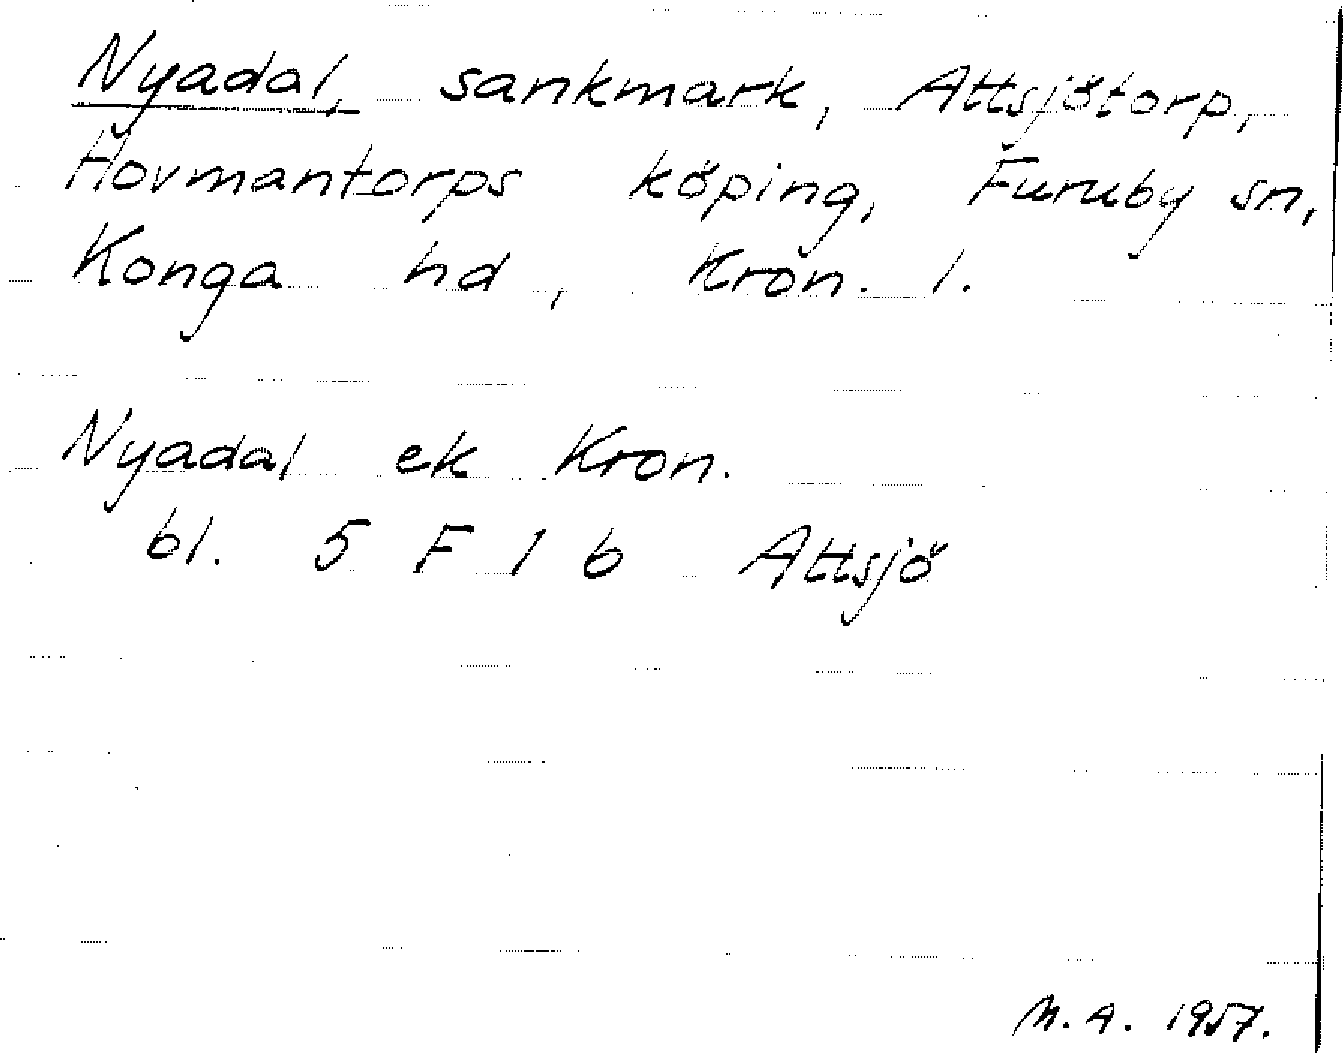 Nyadal, sankmark, Attsjötorp,
Hovmantorps köping, Furuby sn,
Konga hd, Kron. l.
Nyadal ek Kron.
bl. 5 F 1 b Attsjö
M. A. 1957.